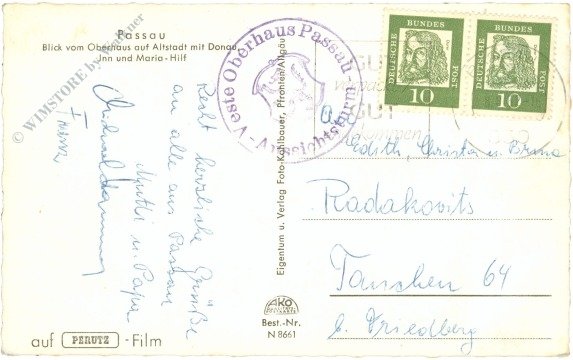 Passau
Blick vom Oberhaus auf Altstadt mit Donau
Inn und Maria-Hilf
© WIMSTORE by
Recht herzliche Grüße
an alle aus Passau
Mutti u. Papa
Franz
auf PERUTZ-Film
Veste Oberhaus Passau
Aussichtsturm
Eigentum u. Verlag Foto-Kohlbauer, Pfronten/Allgäu
AKO
Best.-Nr.
N 8661
DEUTSCHE BUNDES POST
10
DEUTSCHE BUNDES POST
10
GUT
GUT
Edith, Christa u. Bruno
Radakovits
Tauschen 64
b. Friedberg